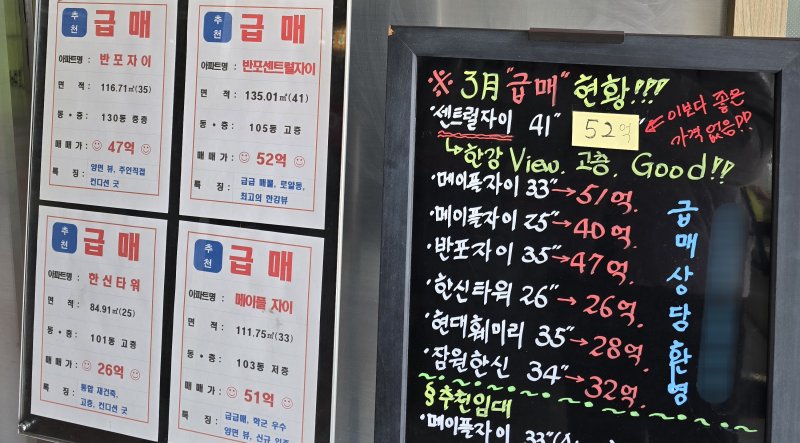 추천 급매
아파트명 : 반포자이
면 적 : 116.71㎡(35)
동 • 층 : 130동 중층
매 매 가 : 47억
특 징 : 양면 뷰, 주인직접
컨디션 굿
추천 급매
아파트명 : 반포센트럴자이
면 적 : 135.01㎡(41)
동 • 층 : 105동 고층
매 매 가 : 52억
특 징 : 급급 매물, 로얄동,
최고의 한강뷰
추천 급매
아파트명 : 한신타워
면 적 : 84.91㎡(25)
동 • 층 : 101동 고층
매 매 가 : 26억
특 징 : 통합 재건축,
고층, 컨디션 굿
추천 급매
아파트명 : 메이플 자이
면 적 : 111.75㎡(33)
동 • 층 : 103동 저층
매 매 가 : 51억
특 징 : 급급매, 학군 우수
양면 뷰, 신규
※ 3月 "급매" 현황!!!
·센트럴자이 41" 52억 ← 이보다 좋은
가격 없음!!
↳한강 View, 고층, Good!!
·메이플자이 33"→51억.
·메이플자이 25"→40억.
·반포자이 35"→47억.
·한신타워 26"→26억.
·현대훼미리 35"→28억.
·잠원한신 34"→32억.
급매상담환영
§추천임대
·메이플자이 33"